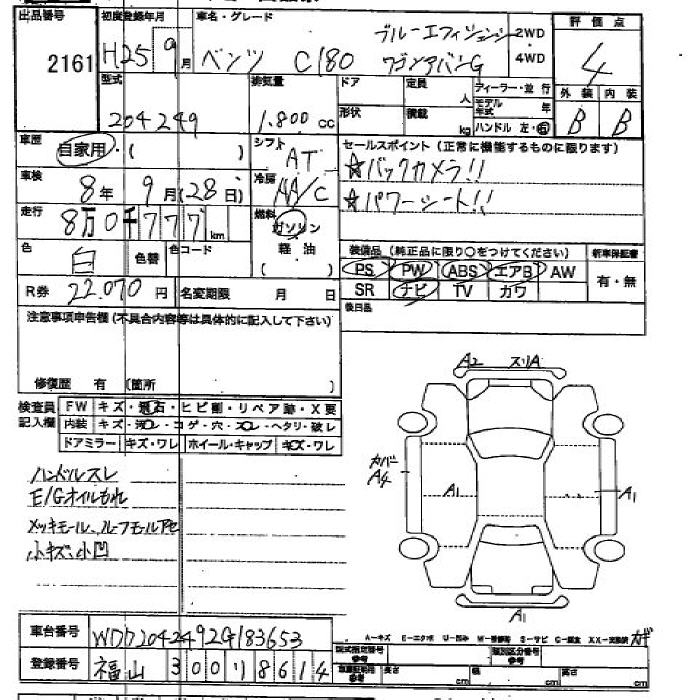 出品番号 初度登録年月 車名・グレード 評価点
2161 H25年9月 ベンツ C180 ブルーエフィシェンシー 2WD
ワゴンアバンG 4WD 4
型式 排気量 ドア 定員 人 ディーラー・並行 外装 内装
204249 1.800cc 形状 積載 kg モデル年式 年 B B
ハンドル 左・右
車歴 自家用・( ) シフト AT セールスポイント(正常に機能するものに限ります)
車検 8年9月(28日) 冷房 AA/C ☆バックカメラ!!
走行 8万0千777km 燃料 ガソリン ☆パワーシート!!
色 白 色替 色コード 軽油 ( ) 装備品(純正品に限り○をつけてください) 新車保証書
PS PW ABS エアB AW 有・無
R券 22.070円 名変期限 月 日 SR ナビ TV カワ
注意事項申告欄(不具合内容等は具体的に記入して下さい) 後日品
修復歴 有 (箇所 )
検査員記入欄 FW キズ・飛石・ヒビ割・リペア跡・X要
内装 キズ・汚レ・コゲ・穴・スレ・ヘタリ・破レ
ドアミラー キズ・ワレ ホイール・キャップ キズ・ワレ
ハンドルスレ
E/Gオイルもれ
メッキモール、ルーフモールアセ
小キズ、小凹
A2 スリA
カバー A4
A1
A1
A1
車台番号 WDD2042492G183653
登録番号 福山 300 リ 8614
A-キズ E-エクボ U-凹み W-補修跡 S-サビ C-腐食 XX-交換済
型式指定番号 参考 類別区分番号 参考
長さ cm 幅 cm 高さ cm